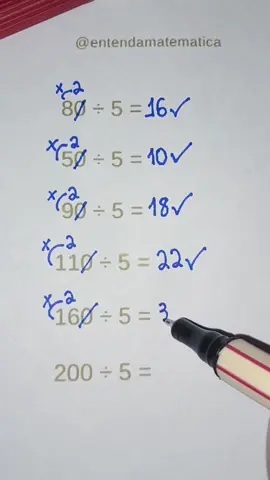 @entendamatematica
x 2
80 ÷ 5 = 16 ✓
x 2
50 ÷ 5 = 10 ✓
x 2
90 ÷ 5 = 18 ✓
x 2
110 ÷ 5 = 22 ✓
x 2
160 ÷ 5 = 3
200 ÷ 5 =